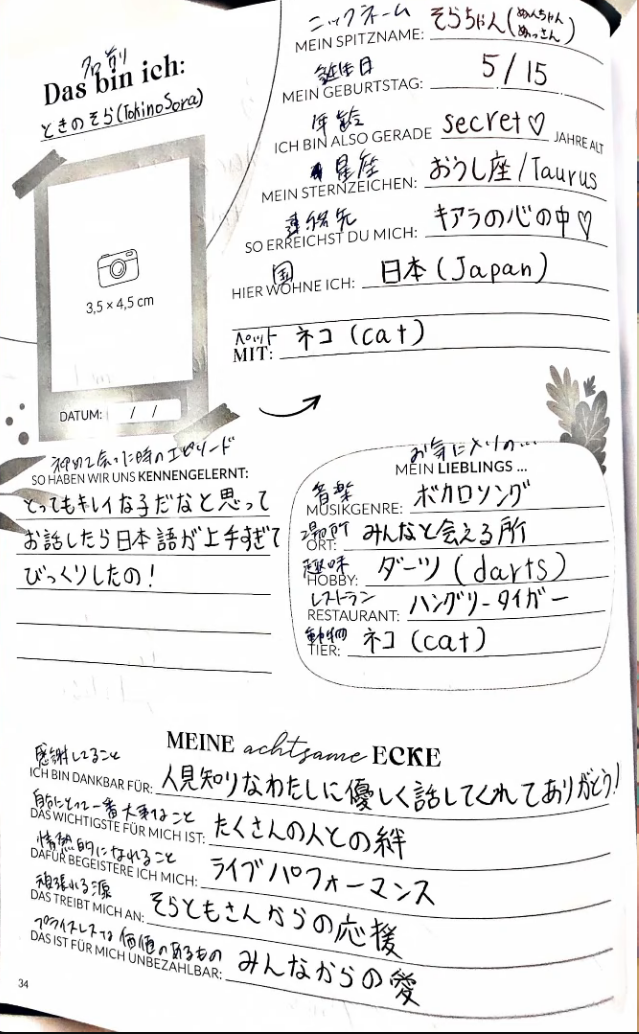 名前
Das bin ich:
ときのそら(TokinoSora)
3,5 × 4,5 cm
DATUM: / /
ニックネーム
MEIN SPITZNAME: そらちゃん(ぬんちゃん ぬっさん)
誕生日
MEIN GEBURTSTAG: 5/15
年齢
ICH BIN ALSO GERADE secret♡ JAHRE ALT
星座
MEIN STERNZEICHEN: おうし座/Taurus
連絡先
SO ERREICHST DU MICH: キアラの心の中♡
国
HIER WOHNE ICH: 日本(Japan)
ペット
MIT: ネコ(cat)
初めて会った時のエピソード
SO HABEN WIR UNS KENNENGELERNT:
とってもキレイな子だなと思って
お話したら日本語が上手すぎて
びっくりしたの!
お気に入りの...
MEIN LIEBLINGS ...
音楽
MUSIKGENRE: ボカロソング
場所
ORT: みんなと会える所
趣味
HOBBY: ダーツ(darts)
レストラン
RESTAURANT: ハングリータイガー
動物
TIER: ネコ(cat)
MEINE achtsame ECKE
感謝してること
ICH BIN DANKBAR FÜR: 人見知りなわたしに優しく話してくれてありがとう!
自分にとって一番大事なこと
DAS WICHTIGSTE FÜR MICH IST: たくさんの人との絆
情熱的になれること
DAFÜR BEGEISTERE ICH MICH: ライブパフォーマンス
頑張れる源
DAS TREIBT MICH AN: そらともさんからの応援
プライスレスな価値のあるもの
DAS IST FÜR MICH UNBEZAHLBAR: みんなからの愛
34